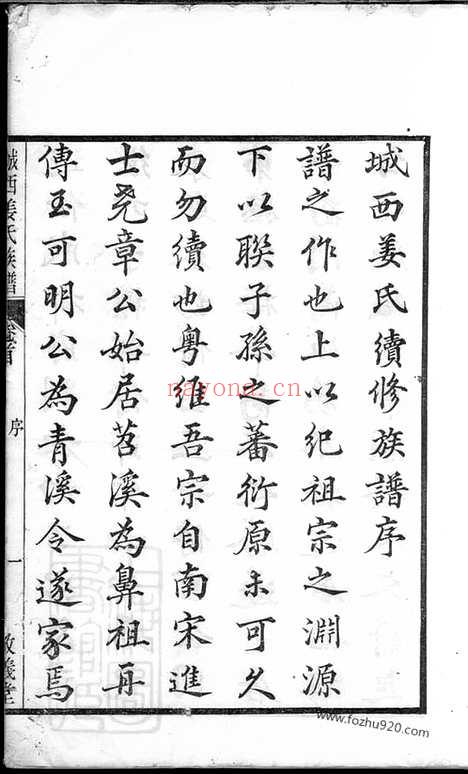 城西姜氏續修族譜序
譜之作也上以紀祖宗之淵源
下以聯子孫之蕃衍原未可久
而勿續也粵維吾宗自南宋進
士堯章公始居苕溪為鼻祖再
傳至可明公為青溪令遂家焉
城西姜氏族譜
卷首
序
一
敦義堂
nayona.cn
www.fozhu920.com